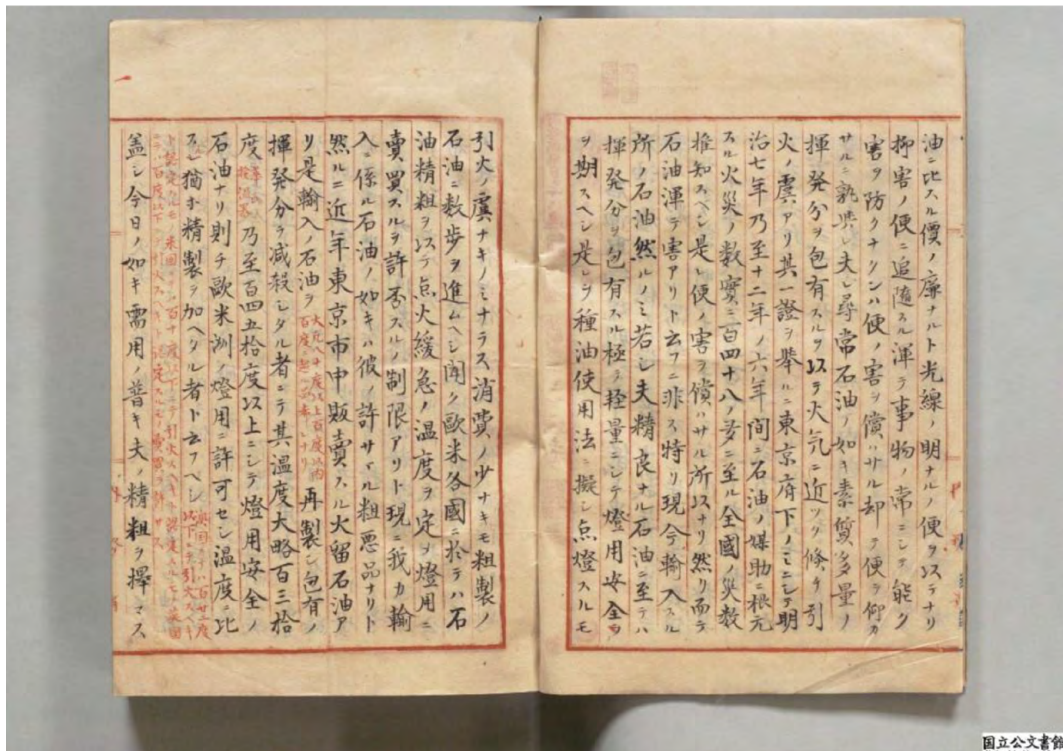 油ニ比スル價ノ廉ナルト光線ノ明ナルノ便ヲ以テナリ
抑害ノ便ニ追隨スル渾テ事物ノ常ニシテ能ク
害ヲ防クナクンハ便ノ害ヲ償ハサル却テ便ヲ仰カ
サルニ孰與レ夫レ尋常石油ノ如キ素質多量ノ
揮発分ヲ包有スルヲ以テ火気ニ近ツク倏チ引
火ノ虞アリ其一證ヲ舉ルニ東京府下ノミニシテ明
治七年乃至十二年ノ六年間ニ石油ノ媒助ニ根元
スル火災ノ数實ニ百四十八ノ多ニ至ル全國ノ災数
推知スベシ是レ便ノ害ヲ償ハサル所以ナリ然リ而テ
石油渾テ害アリト云フニ非ス特リ現今輸入スル
所ノ石油然ルノミ若シ夫精良ナル石油ニ至テハ
揮発分ヲ包有スル極テ軽量ニシテ燈用安全ヲ
期スヘシ是レヲ種油使用法ニ擬シ点燈スルモ
引火ノ虞ナキノミナラス消費ノ少ナキモ粗製ノ
石油ニ数歩ヲ進ムヘシ聞ク欧米各國ニ於テハ石
油精粗ヲ以テ点火緩急ノ温度ヲ定メ燈用ニ
賣買スルヲ許否スルノ制限アリト現ニ我カ輸
入ニ係ル石油ノ如キハ彼ノ許サヽル粗悪品ナリト
然ルニ近年東京市中販賣スル火留石油ア
リ是輸入ノ石油ヲ再製シ包有ノ
揮発分ヲ減殺シタル者ニテ其温度大略百三拾
度乃至百四五拾度以上ニシテ燈用安全ノ
石油ナリ則チ歐米洲ノ燈用ニ許可セシ温度ニ比
スレハ猶ホ精製ヲ加ヘタル者ト云フヘシ
蓋シ今日ノ如キ需用ノ普キ夫ノ精粗ヲ擇マス
国立公文書館